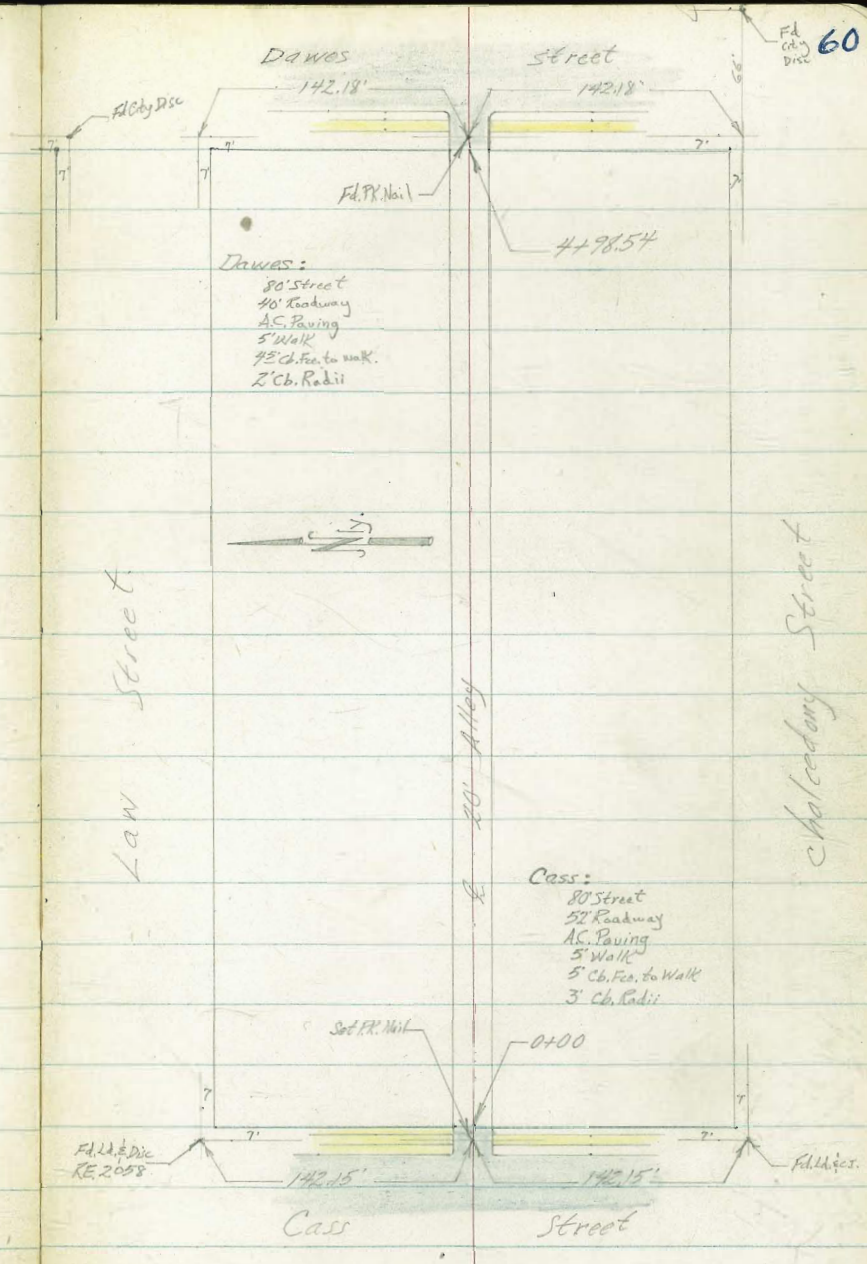 60
Fd
City
Disc
66'
Dawes Street
142.18' 142.18'
Fd City Disc
7'
7'
7'
7'
7'
7'
Fd. P.K. Nail
4+98.54
Dawes:
80' Street
40' Roadway
A.C. Paving
5' Walk
Cb. Fce. to walk.
2' Cb. Radii
N'ly.
Law Street
20' Alley
Chalcedony Street
Cass:
80' Street
52' Roadway
A.C. Paving
5' Walk
5' Cb. Fce. to Walk
3' Cb. Radii
Set P.K. Nail
0+00
7
7
7'
7'
Fd. Ld. & Disc
RE. 2058
Fd. Ld. &
142.15' 142.15'
Cass Street